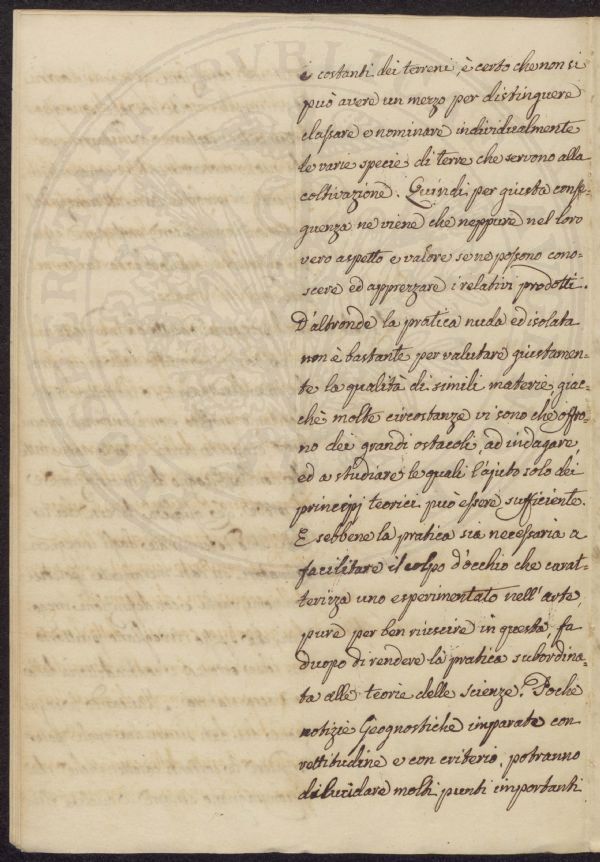 i costanti dei terreni, è certo che non si
può avere un mezzo per distinguere
classare e nominare individualmente
le varie specie di terre che servono alla
coltivazione. Quindi per giusta conse-
guenza ne viene che neppure nel loro
vero aspetto e valore se ne possono cono-
scere ed apprezzare i relativi prodotti.
D'altronde la pratica nuda ed isolata
non è bastante per valutare giustamen-
te la qualità di simili materie, giac-
chè molte circostanze vi sono che offro-
no dei grandi ostacoli, ad indagare,
ed a studiare le quali l'ajuto solo dei
principj teorici può essere sufficiente.
E sebbene la pratica sia necessaria a
facilitare il colpo d'occhio che carat-
terizza uno esperimentato nell'arte,
pure per ben riuscire in questa, fa
duopo di rendere la pratica subordina-
ta alle teorie delle scienze. Poche
notizie Geognostiche imparate con
rettitudine e con criterio, potranno
dilucidare molti punti importanti